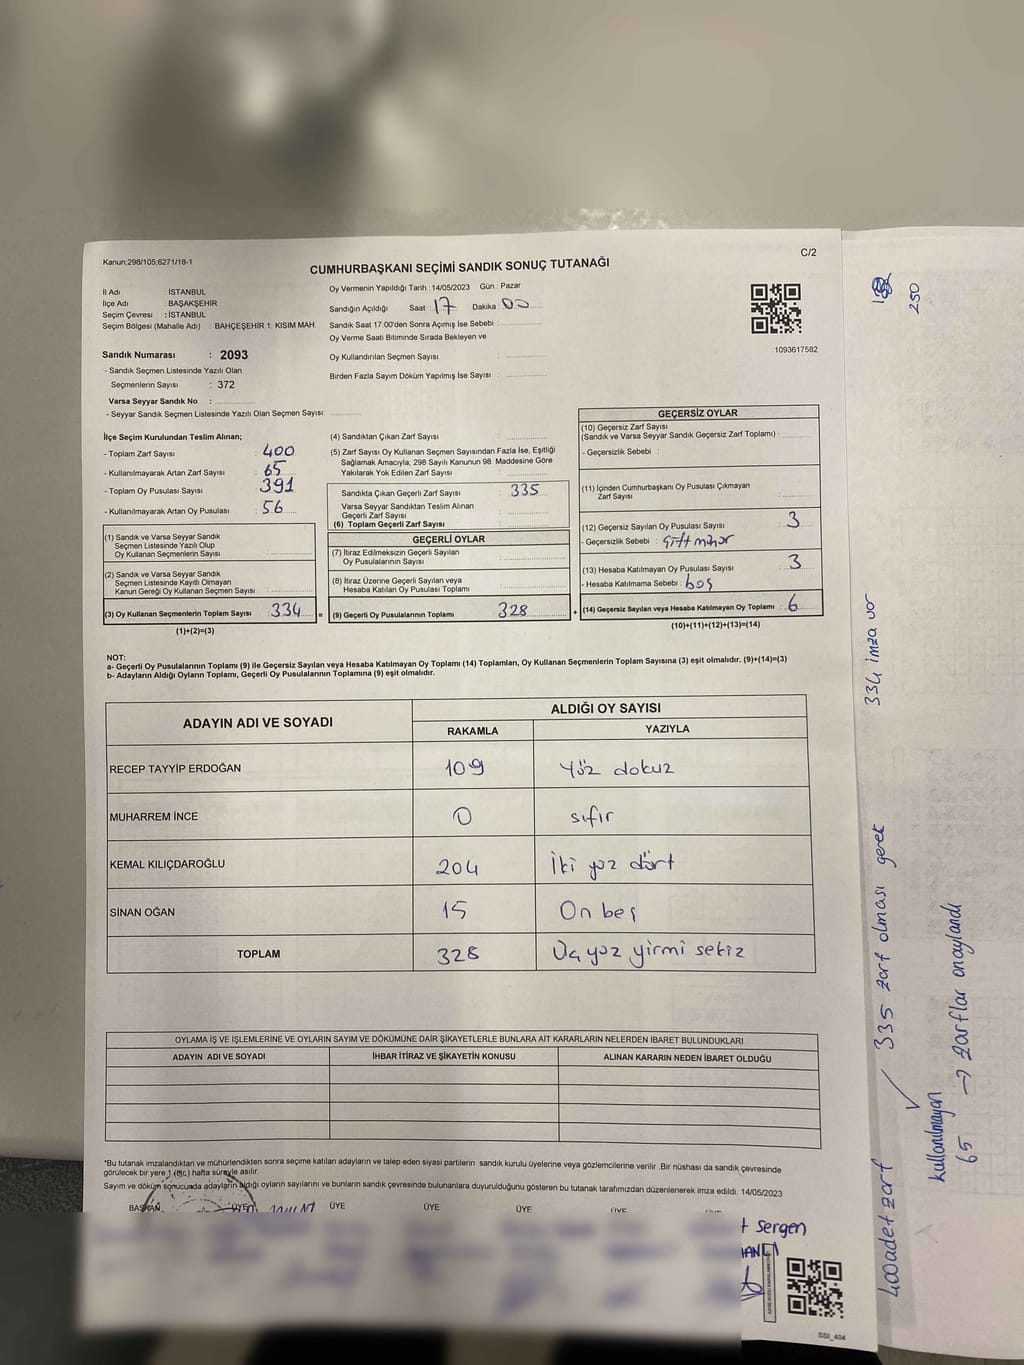 Kanun;298/105;6271/18-1
C/2
CUMHURBAŞKANI SEÇİMİ SANDIK SONUÇ TUTANAĞI
İl Adı İSTANBUL
İlçe Adı BAŞAKŞEHİR
Seçim Çevresi : İSTANBUL
Seçim Bölgesi (Mahalle Adı) : BAHÇEŞEHİR 1. KISIM MAH.
Oy Vermenin Yapıldığı Tarih : 14/05/2023 Gün : Pazar
Sandığın Açıldığı Saat : 17 Dakika : 00
Sandık Saat 17.00'den Sonra Açımış İse Sebebi :
Oy Verme Saati Bitiminde Sırada Bekleyen ve
Oy Kullandırılan Seçmen Sayısı :
Birden Fazla Sayım Döküm Yapılmış İse Sayısı :
1093617582
Sandık Numarası : 2093
- Sandık Seçmen Listesinde Yazılı Olan
Seçmenlerin Sayısı : 372
Varsa Seyyar Sandık No :
- Seyyar Sandık Seçmen Listesinde Yazılı Olan Seçmen Sayısı:
İlçe Seçim Kurulundan Teslim Alınan;
- Toplam Zarf Sayısı : 400
- Kullanılmayarak Artan Zarf Sayısı : 65
- Toplam Oy Pusulası Sayısı : 391
- Kullanılmayarak Artan Oy Pusulası : 56
(1) Sandık ve Varsa Seyyar Sandık
Seçmen Listesinde Yazılı Olup
Oy Kullanan Seçmenlerin Sayısı :
(2) Sandık ve Varsa Seyyar Sandık
Seçmen Listesinde Kayıtlı Olmayan
Kanun Gereği Oy Kullanan Seçmen Sayısı :
(3) Oy Kullanan Seçmenlerin Toplam Sayısı : 334
(1)+(2)=(3)
(4) Sandıktan Çıkan Zarf Sayısı :
(5) Zarf Sayısı Oy Kullanan Seçmen Sayısından Fazla İse, Eşitliği
Sağlamak Amacıyla; 298 Sayılı Kanunun 98. Maddesine Göre
Yakılarak Yok Edilen Zarf Sayısı :
Sandıkta Çıkan Geçerli Zarf Sayısı : 335
Varsa Seyyar Sandıktan Teslim Alınan
Geçerli Zarf Sayısı :
(6) Toplam Geçerli Zarf Sayısı :
GEÇERLİ OYLAR
(7) İtiraz Edilmeksizin Geçerli Sayılan
Oy Pusulalarının Sayısı :
(8) İtiraz Üzerine Geçerli Sayılan veya
Hesaba Katılan Oy Pusulası Toplamı :
= (9) Geçerli Oy Pusulalarının Toplamı : 328
GEÇERSİZ OYLAR
(10) Geçersiz Zarf Sayısı
(Sandık ve Varsa Seyyar Sandık Geçersiz Zarf Toplamı) :
- Geçersizlik Sebebi :
(11) İçinden Cumhurbaşkanı Oy Pusulası Çıkmayan
Zarf Sayısı :
(12) Geçersiz Sayılan Oy Pusulası Sayısı : 3
- Geçersizlik Sebebi : Çift mühür
(13) Hesaba Katılmayan Oy Pusulası Sayısı : 3
- Hesaba Katılmama Sebebi : boş
+ (14) Geçersiz Sayılan veya Hesaba Katılmayan Oy Toplamı : 6
(10)+(11)+(12)+(13)=(14)
NOT:
a- Geçerli Oy Pusulalarının Toplamı (9) ile Geçersiz Sayılan veya Hesaba Katılmayan Oy Toplamı (14) Toplamları, Oy Kullanan Seçmenlerin Toplam Sayısına (3) eşit olmalıdır. (9)+(14)=(3)
b- Adayların Aldığı Oyların Toplamı, Geçerli Oy Pusulalarının Toplamına (9) eşit olmalıdır.
ADAYIN ADI VE SOYADI ALDIĞI OY SAYISI
RAKAMLA YAZIYLA
RECEP TAYYİP ERDOĞAN 109 Yüz dokuz
MUHARREM İNCE 0 sıfır
KEMAL KILIÇDAROĞLU 204 İki yüz dört
SİNAN OĞAN 15 On beş
TOPLAM 328 Üç yüz yirmi sekiz
OYLAMA İŞ VE İŞLEMLERİNE VE OYLARIN SAYIM VE DÖKÜMÜNE DAİR ŞİKAYETLERLE BUNLARA AİT KARARLARIN NELERDEN İBARET BULUNDUKLARI
ADAYIN ADI VE SOYADI İHBAR İTİRAZ VE ŞİKAYETİN KONUSU ALINAN KARARIN NEDEN İBARET OLDUĞU
*Bu tutanak imzalandıktan ve mühürlendikten sonra seçime katılan adayların ve talep eden siyasi partilerin sandık kurulu üyelerine veya gözlemcilerine verilir .Bir nüshası da sandık çevresinde
görülecek bir yere 1 (Bir) hafta süreyle asılır.
Sayım ve döküm sonucunda adayların aldığı oyların sayılarını ve bunların sandık çevresinde bulunanlara duyurulduğunu gösteren bu tutanak tarafımızdan düzenlenerek imza edildi. 14/05/2023
BAŞKAN ÜYE ÜYE ÜYE ÜYE ÜYE
t Sergen
SSI_404
400 adet zarf / 335 zarf olması gerek 334 imza var
kullanılmayan
65 → zarflar onaylandı
250